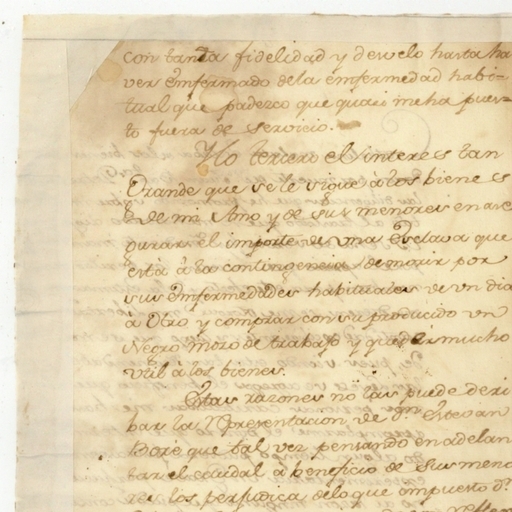 con tanta fidelidad y desvelo hasta ha
ver emfermado dela emfermedad habi-
tual que padezco que quasi me ha pues-
to fuera de servicio.
Yo tercero el interes tan
Grande que se le sigue â los bienes
de mi Amo y de sus menores en ase
gurar el importe de una Esclava que
está â la contingencia de morir por
sus emfermedades habituales de un dia
a Otro y comprar con su producido un
Negro moso de trabajo y quedar mucho
util â los bienes.
Estas razones no las puede deri
bar la Representacion de Dn Estevan
Boré que tal vez pensando en adelan
tar el caudal â beneficio de sus meno
res los perjudica delo que ampuesto dr.